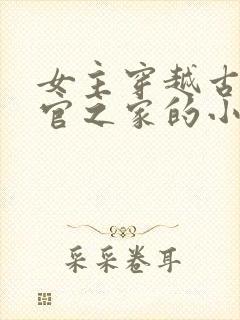 女主穿越古
官之家的小
采采卷耳